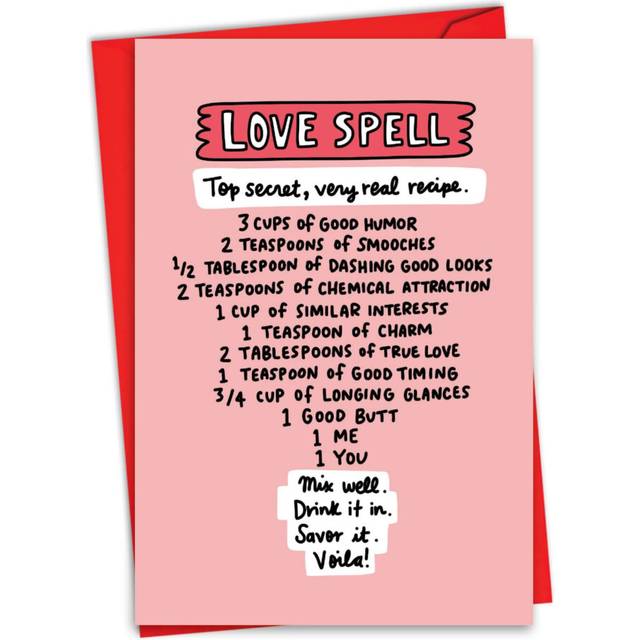 LOVE SPELL
Top secret, very real recipe.
3 CUPS of GOOD HUMOR
2 TEASPOONS of SMOOCHES
1/2 TABLESPOON of DASHING GOOD LOOKS
2 TEASPOONS of CHEMICAL ATTRACTION
1 CUP of SIMILAR INTERESTS
1 TEASPOON of CHARM
2 TABLESPOONS of TRUE LOVE
1 TEASPOON of GOOD TIMING
3/4 CUP of LONGING GLANCES
1 GOOD BUTT
1 ME
1 YOU
Mix well.
Drink it in.
Savor it.
Voila!